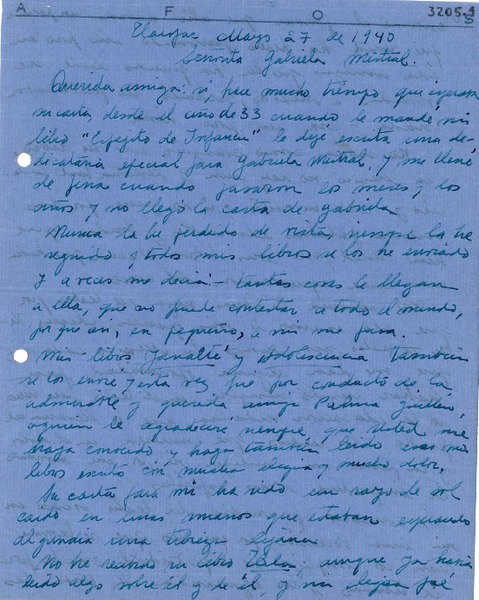 A F O 3205-
Mayo 27 de 1940
Señorita Gabriela Mistral.
Querida amiga: si, hace mucho tiempo que esperaba
su carta, desde el año de 33 cuando le mandé mi
libro "Espejito de Infancia" le dejé escrita una de-
dicatoria especial para Gabriela Mistral, y me llené
de pena cuando pasaron los meses, y los
años y no llegó la carta de Gabriela
Nunca la he perdido de vista, siempre la he
seguido y todos mis libros se los he enviado
y a veces me decía: - tantas cosas le llegan
a ella, que no puede contestar a todo el mundo,
por que en pequeño, a mi me pasa.
Mis libros y Adolescencia también
se los envié y esta vez fue por conducto de la
admirable y querida amiga Palma Guillén,
a quien le agradeceré siempre, que Usted me
haya conocido y haya también leído esos mis
libros escritos con mucha alegría y mucho dolor.
Su carta para mi ha sido un rayo de sol
caído en unas manos que estaban esperando
algún día una tibieza lejana
No he recibido su libro Tala; aunque ya había
leído algo sobre él y de él, y mi